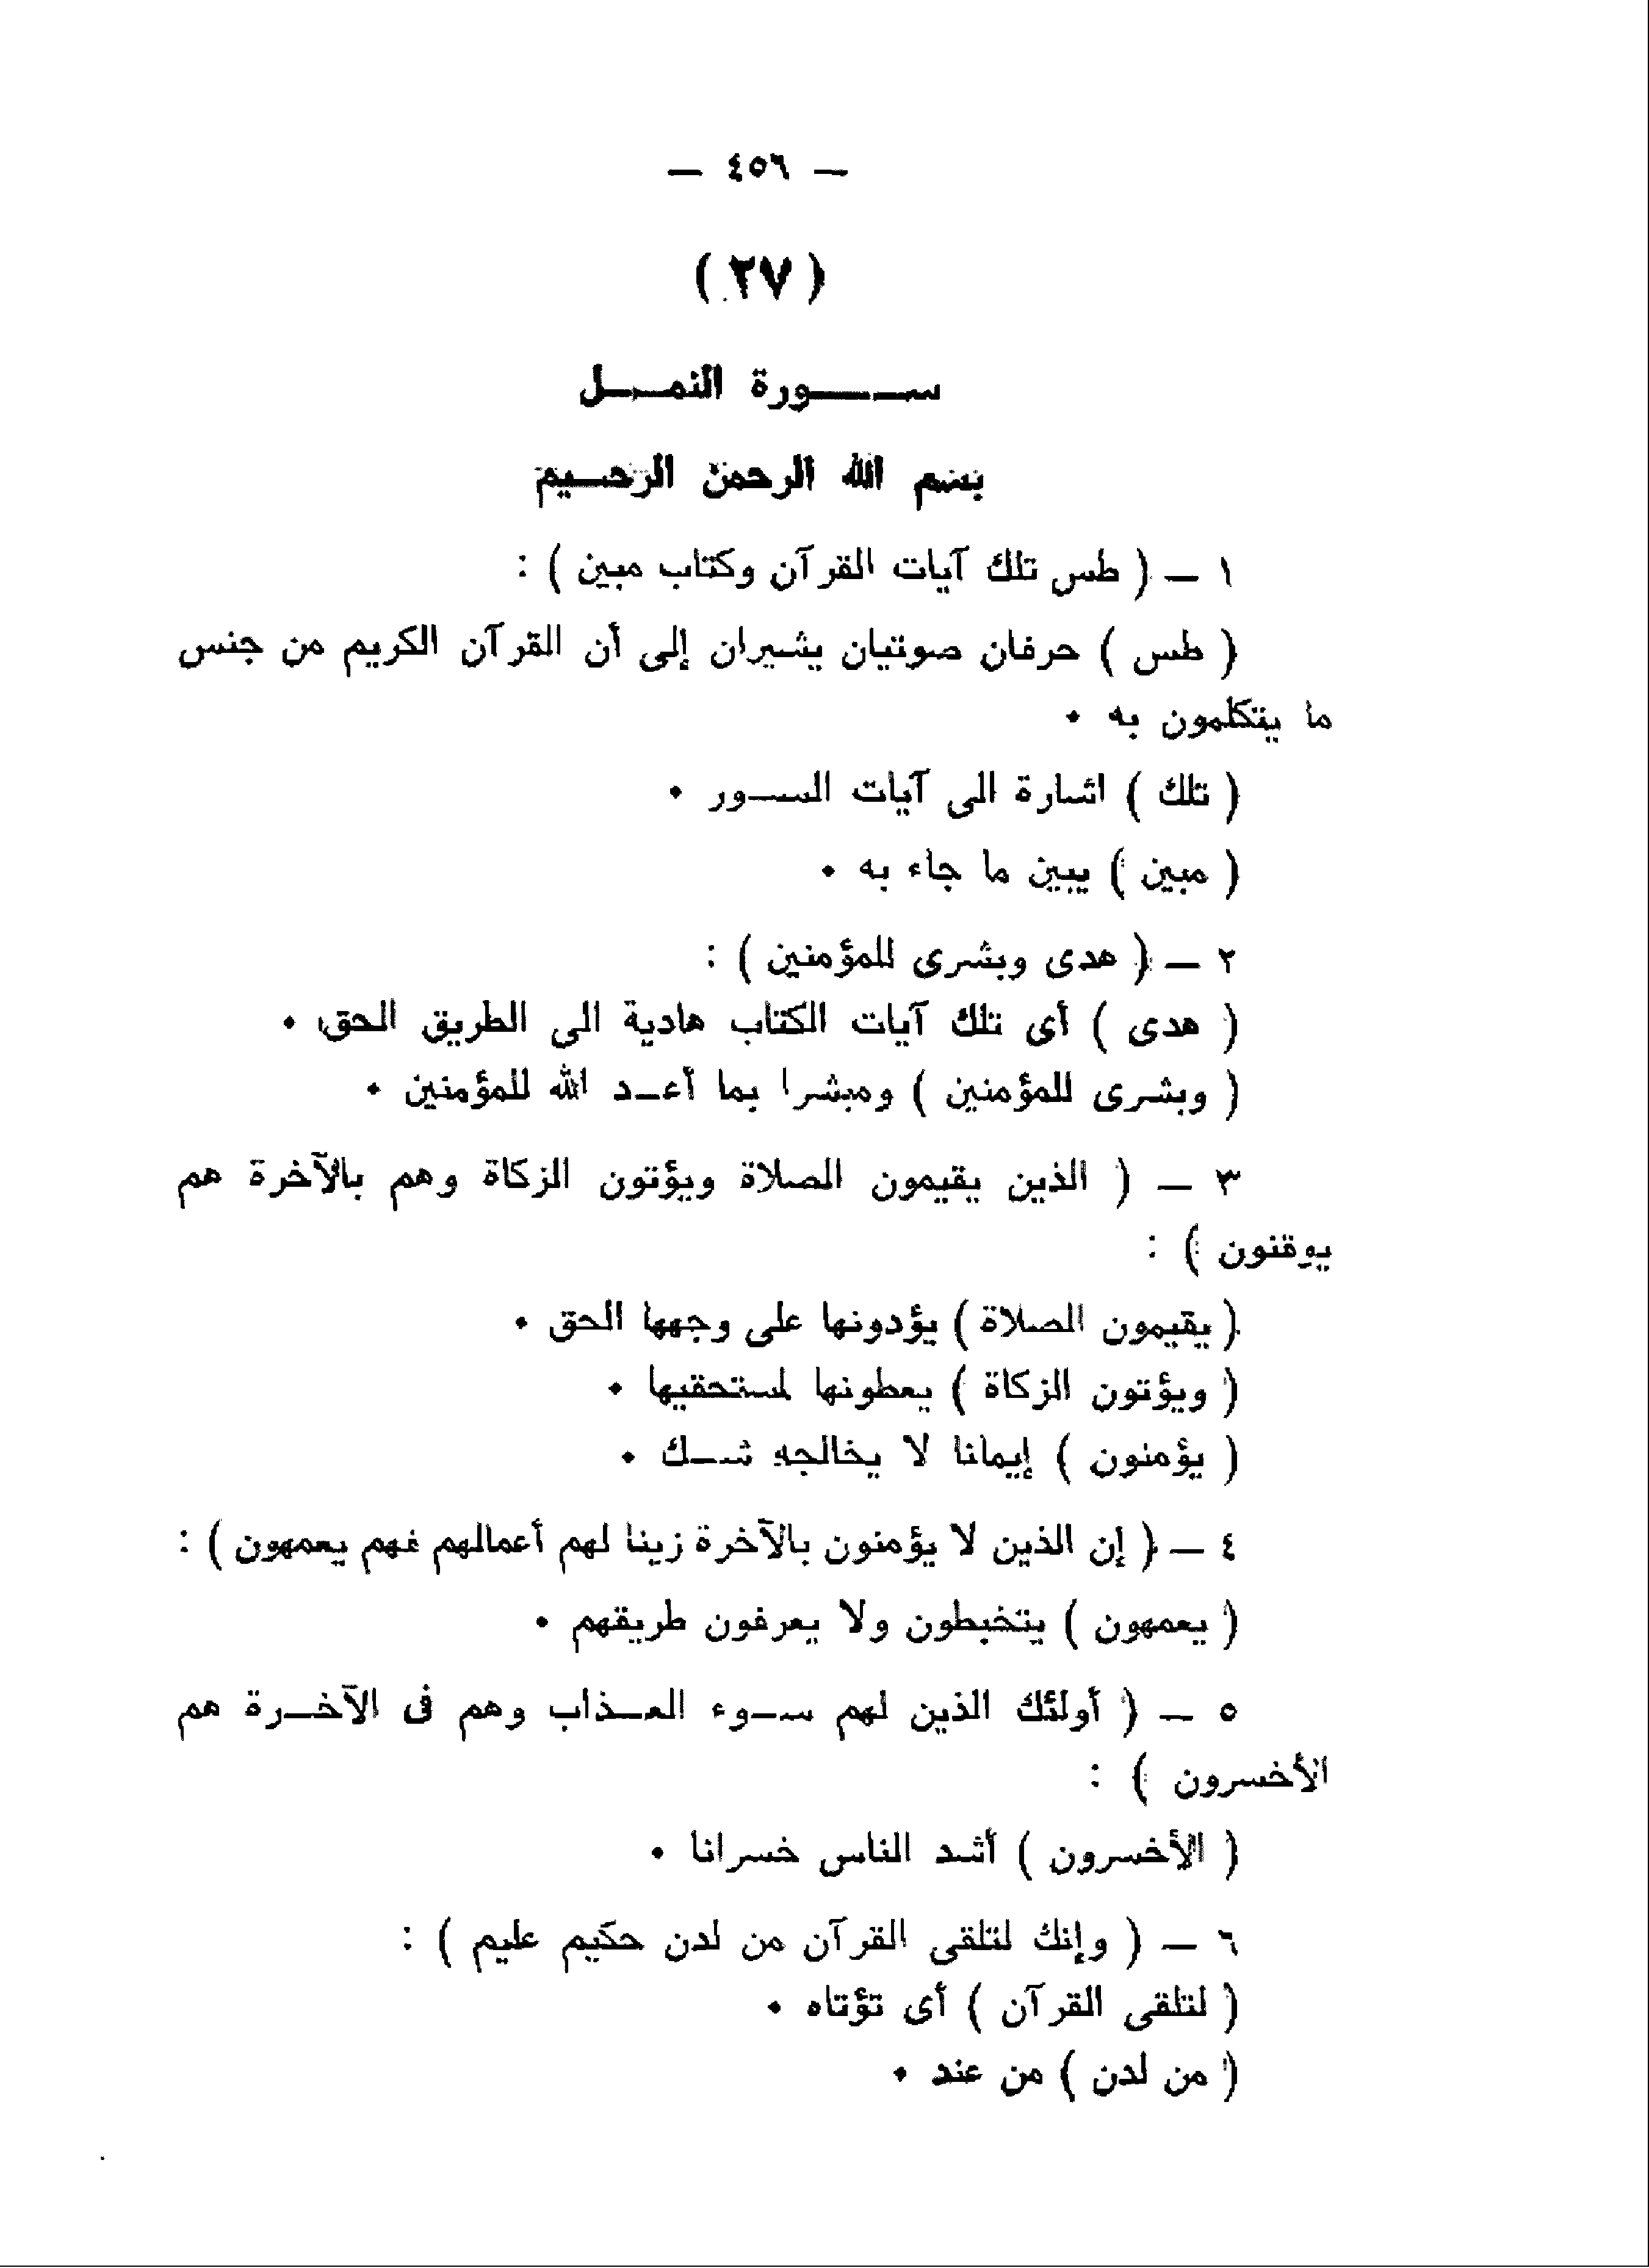 — ٤٥٦ —
( ٢٧ )
سورة النمل
بسم الله الرحمن الرحيم
١ — ( طس تلك آيات القرآن وكتاب مبين ) :
( طس ) حرفان صوتيان يشيران إلى أن القرآن الكريم من جنس
ما يتكلمون به ٠
( تلك ) اشارة الى آيات السور ٠
( مبين ) يبين ما جاء به ٠
٢ — ( هدى وبشرى للمؤمنين ) :
( هدى ) أى تلك آيات الكتاب هادية الى الطريق الحق ٠
( وبشرى للمؤمنين ) ومبشرا بما أعد الله للمؤمنين ٠
٣ — ( الذين يقيمون الصلاة ويؤتون الزكاة وهم بالآخرة هم
يوقنون ) :
( يقيمون الصلاة ) يؤدونها على وجهها الحق ٠
( ويؤتون الزكاة ) يعطونها لمستحقيها ٠
( يؤمنون ) إيمانا لا يخالجه شك ٠
٤ — ( إن الذين لا يؤمنون بالآخرة زينا لهم أعمالهم فهم يعمهون ) :
( يعمهون ) يتخبطون ولا يعرفون طريقهم ٠
٥ — ( أولئك الذين لهم سوء العذاب وهم فى الآخرة هم
الأخسرون ) :
( الأخسرون ) أشد الناس خسرانا ٠
٦ — ( وإنك لتلقى القرآن من لدن حكيم عليم ) :
( لتلقى القرآن ) أى تؤتاه ٠
( من لدن ) من عند ٠